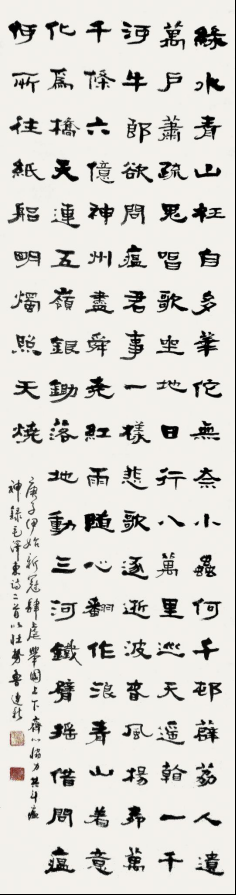 綠水青山枉自多華佗無奈小蟲何千邨薜荔人遺
萬戶蕭疏鬼唱歌坐地日行八萬里巡天遥翰一千
河牛郎欲問瘟君事一樣悲歌逐逝波春風楊柳萬
千條六億神州盡舜堯紅雨隨心翻作浪青山着意
化為橋天連五嶺銀鋤落地動三河鐵臂搖借問瘟
何所往紙船明燭照天燒
庚子伊始新冠肆虐舉國上下齊心協力共斗瘟
神錄毛澤東詩二首以壯勢